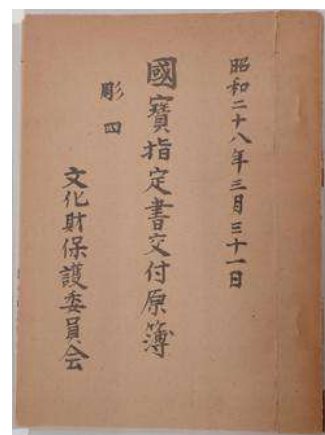 昭和二十八年三月三十一日
國寳指定書交付原簿
彫四
文化財保護委員会